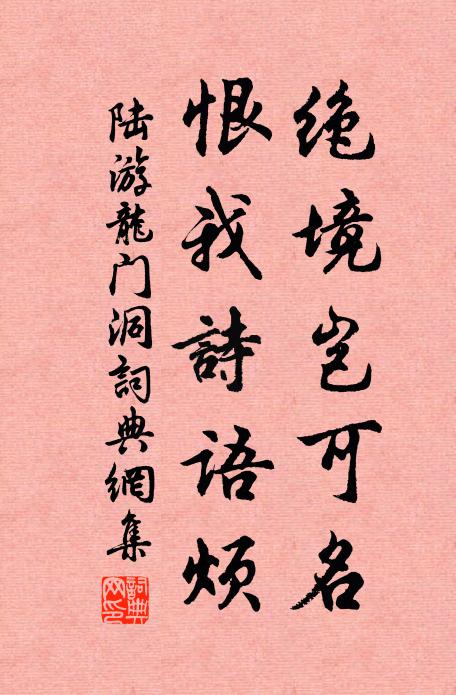 绝境岂可名
恨我詩语烦
陆游龍门洞詞典網集
詞典
网印